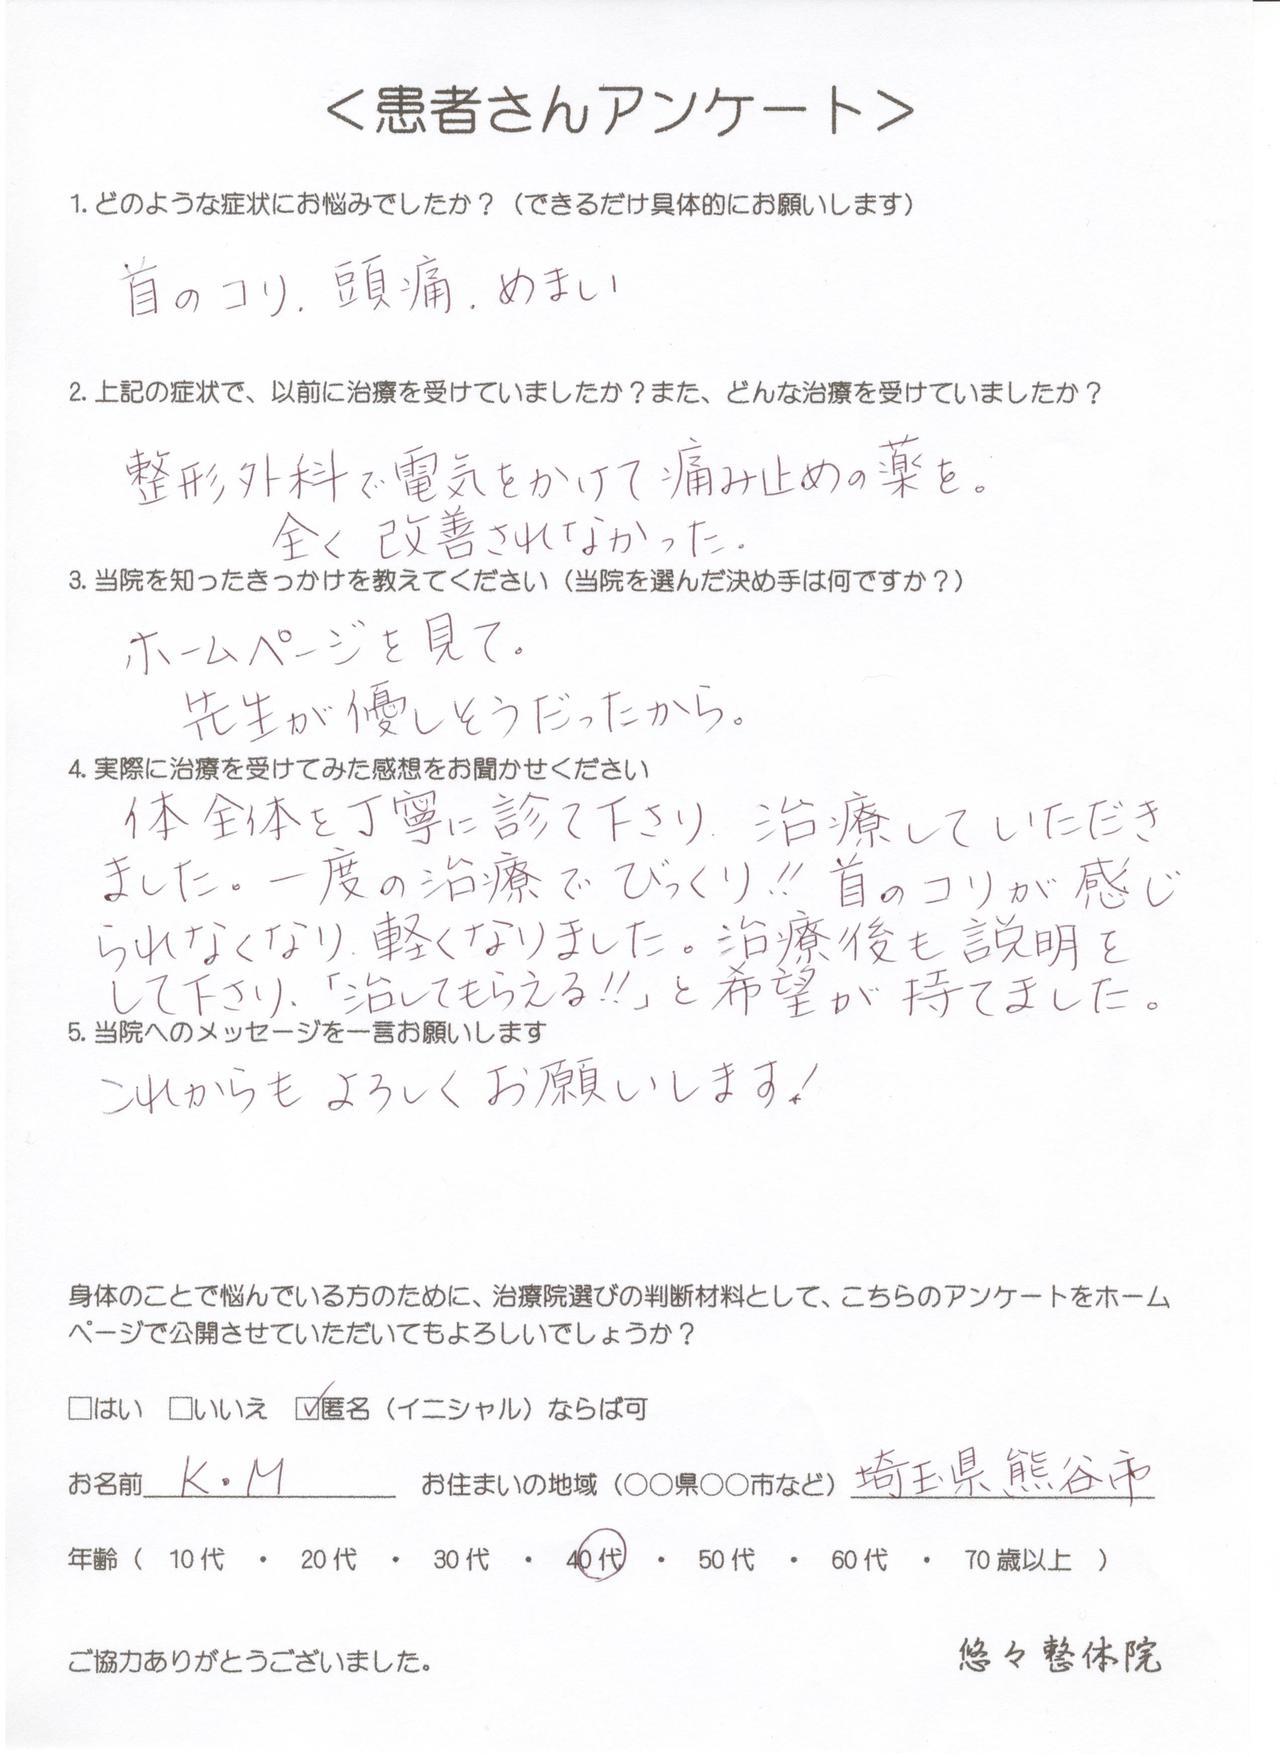 ＜患者さんアンケート＞
1. どのような症状にお悩みでしたか？（できるだけ具体的にお願いします）
首のコリ. 頭痛. めまい
2. 上記の症状で、以前に治療を受けていましたか？また、どんな治療を受けていましたか？
整形外科で電気をかけて痛み止めの薬を。
全く改善されなかった.
3. 当院を知ったきっかけを教えてください（当院を選んだ決め手は何ですか？）
ホームページを見て。
先生が優しそうだったから。
4. 実際に治療を受けてみた感想をお聞かせください
体全体を丁寧に診て下さり、治療していただき
ました。一度の治療でびっくり!! 首のコリが感じ
られなくなり、軽くなりました。治療後も説明を
して下さり、「治してもらえる!!」と希望が持てました。
5. 当院へのメッセージを一言お願いします
これからもよろしくお願いします!
身体のことで悩んでいる方のために、治療院選びの判断材料として、こちらのアンケートをホーム
ページで公開させていただいてもよろしいでしょうか？
□はい □いいえ ☑匿名（イニシャル）ならば可
お名前 K・M お住まいの地域（○○県○○市など）埼玉県熊谷市
年齢（ 10代 ・ 20代 ・ 30代 ・ 40代 ・ 50代 ・ 60代 ・ 70歳以上 ）
ご協力ありがとうございました。 悠々整体院